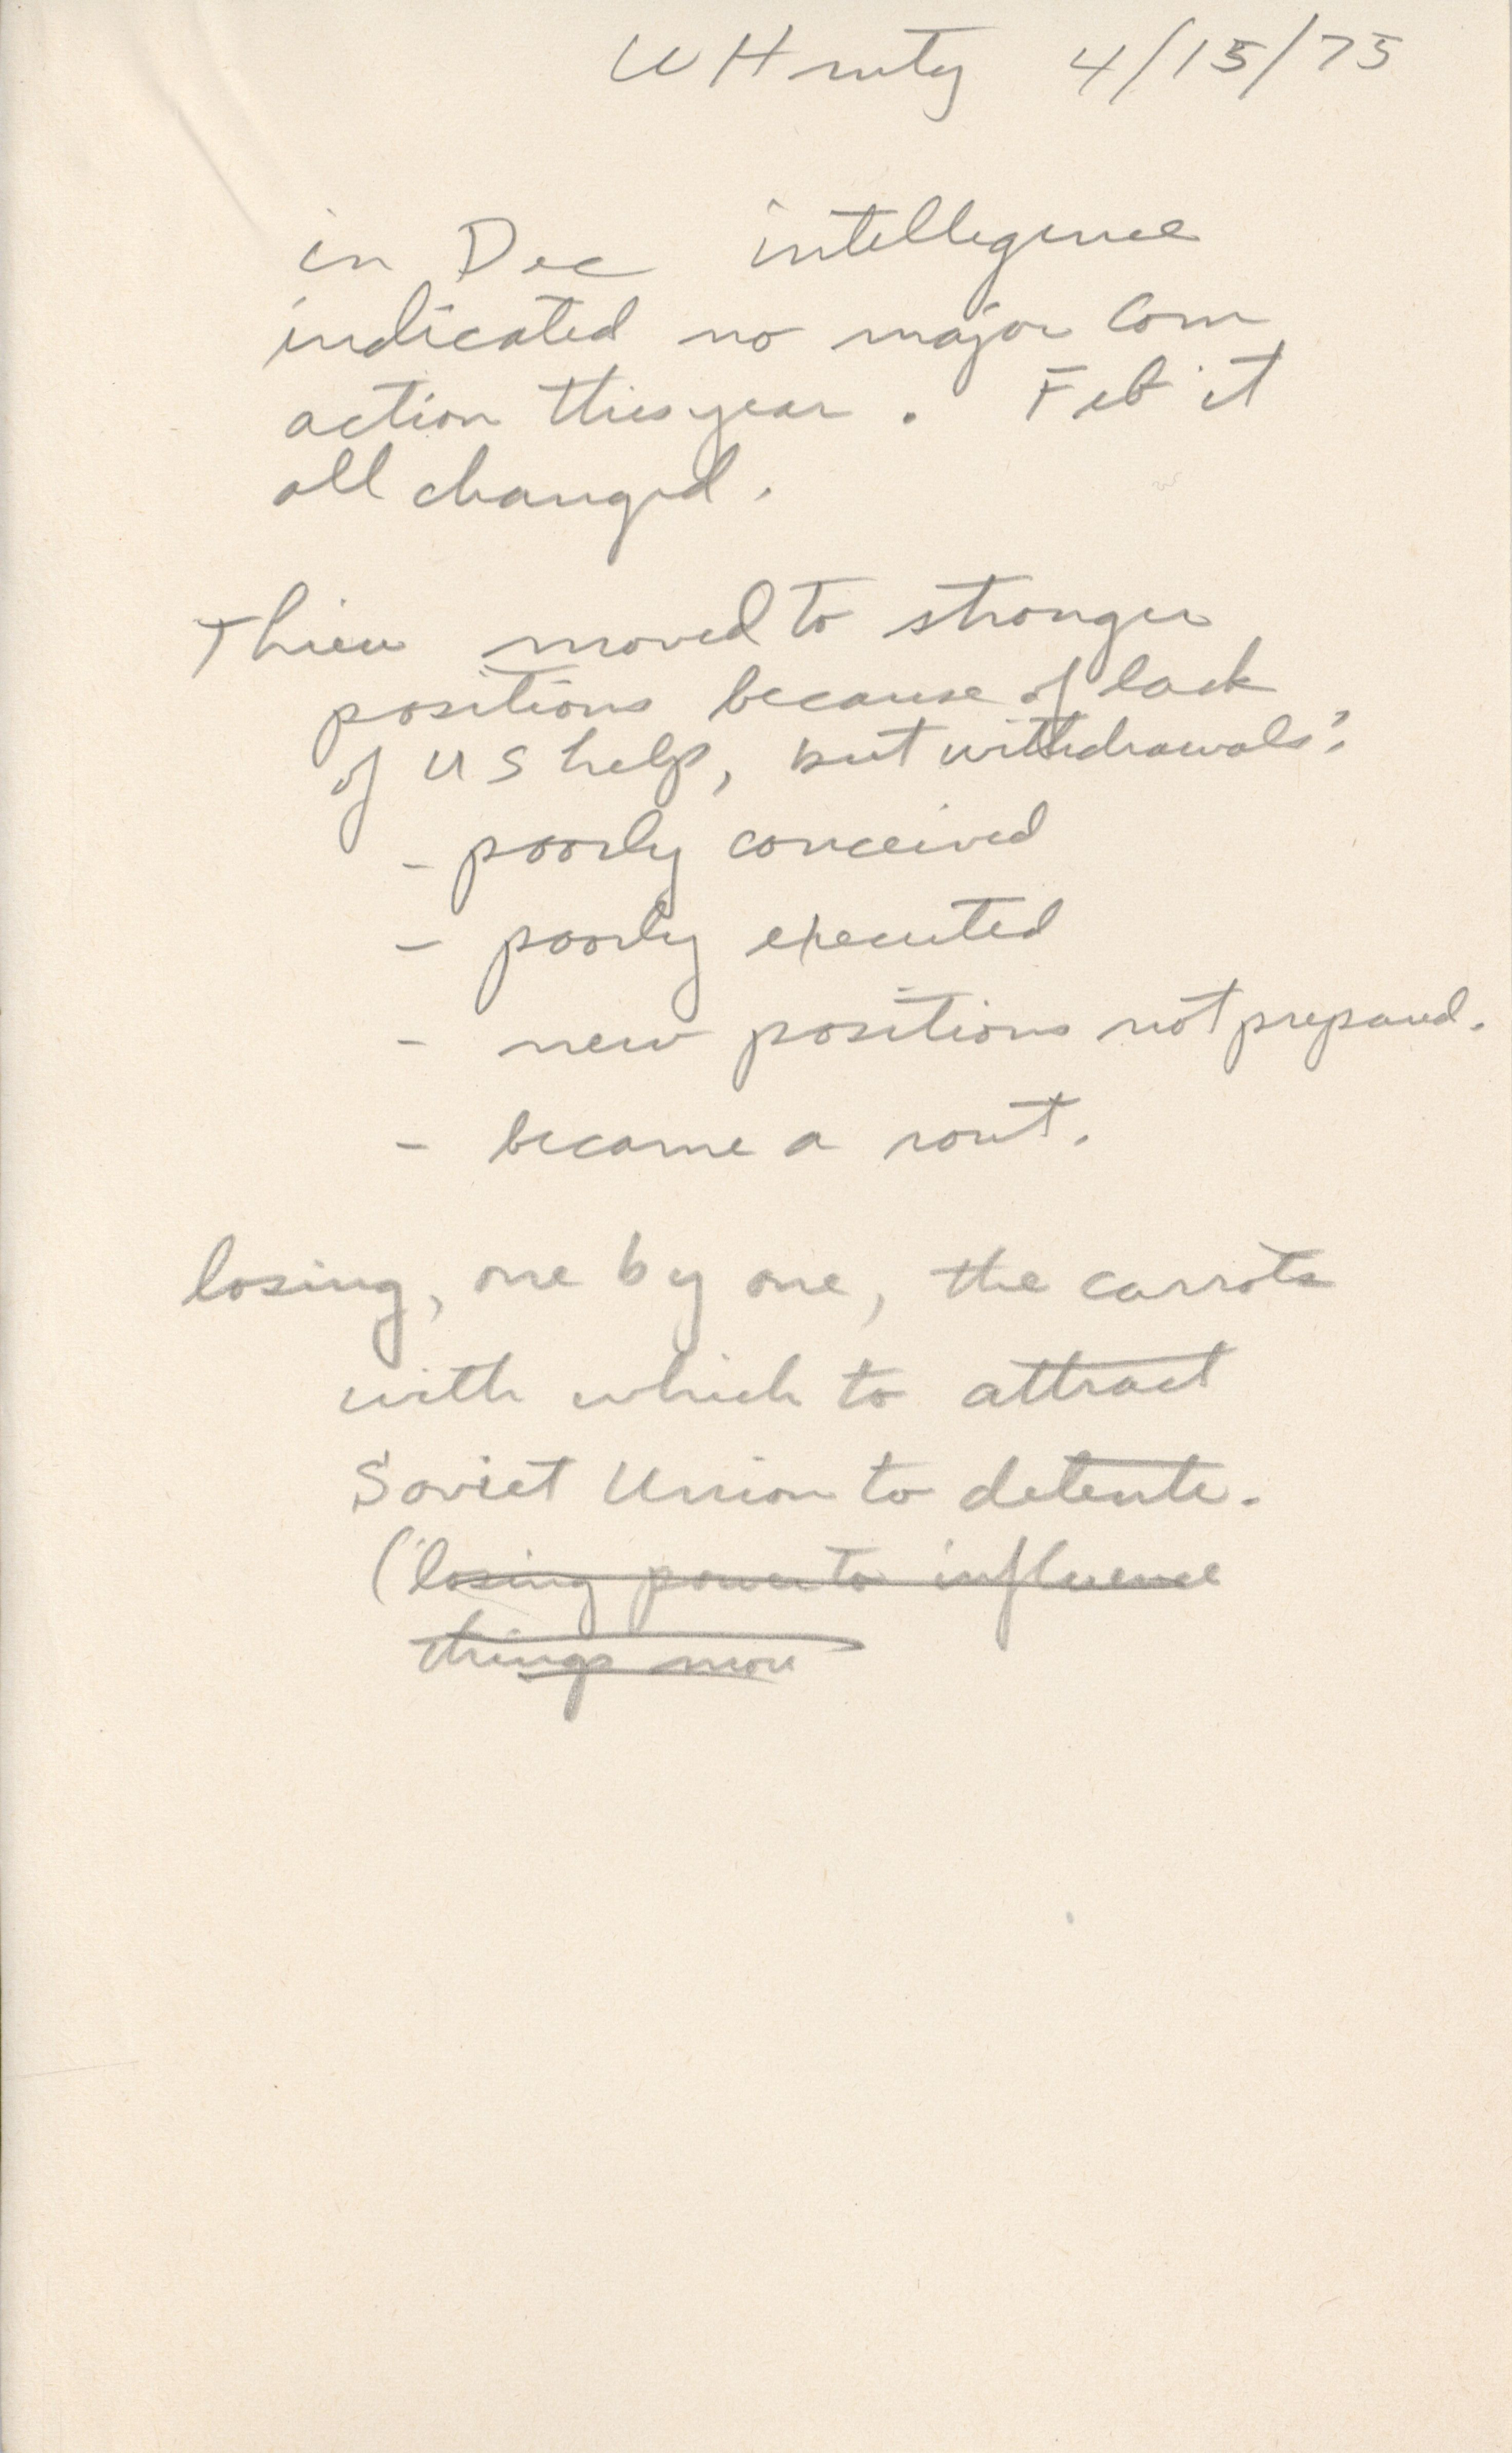 WH mtg 4/15/75
in Dec intellegence
indicated no major Com
action this year. Feb it
all changed.
Thieu moved to stronger
positions because of lack
of US help, but withdrawals:
- poorly conceived
- poorly executed
- new positions not prepared.
- became a rout.
losing, one by one, the carrots
with which to attract
Soviet Union to detente.
(losing power to influence
things more